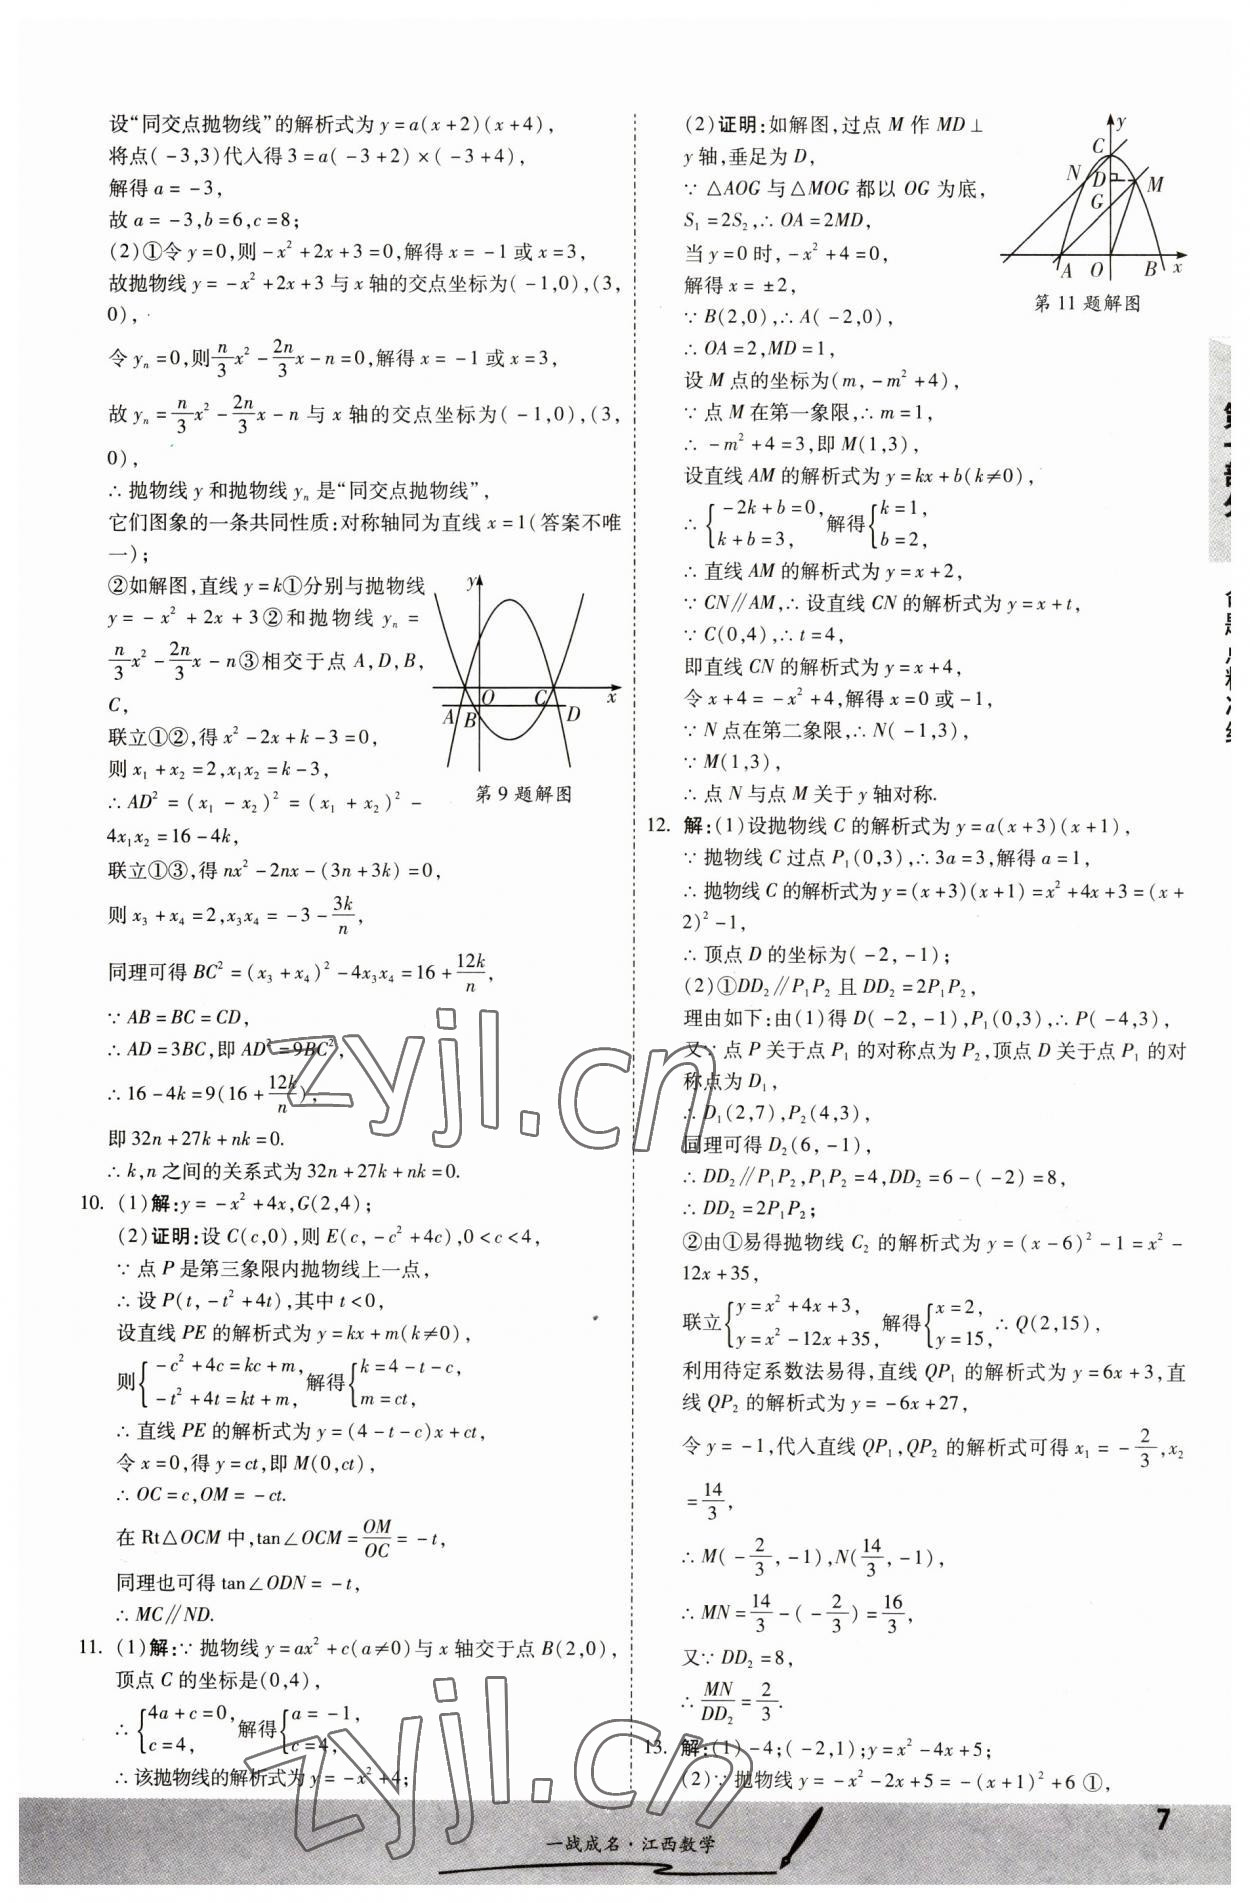 设“同交点抛物线”的解析式为 y=a(x+2)(x+4),
将点(-3,3)代入得3=a(-3+2)×(-3+4),
解得 a=-3,
故 a=-3,b=6,c=8;
(2)①令 y=0,则-x²+2x+3=0,解得 x=-1 或 x=3,
故抛物线 y=-x²+2x+3 与 x 轴的交点坐标为(-1,0),(3,
0),
令 yₙ=0,则n/3 x²-2n/3 x-n=0,解得 x=-1 或 x=3,
故 yₙ=n/3 x²-2n/3 x-n 与 x 轴的交点坐标为(-1,0),(3,
0),
∴抛物线 y 和抛物线 yₙ 是“同交点抛物线”,
它们图象的一条共同性质:对称轴同为直线 x=1(答案不唯
一);
②如解图,直线 y=k①分别与抛物线
y=-x²+2x+3②和抛物线 yₙ=
n/3 x²-2n/3 x-n③相交于点 A,D,B,
C,
联立①②,得 x²-2x+k-3=0,
则 x₁+x₂=2,x₁x₂=k-3,
∴AD²=(x₁-x₂)²=(x₁+x₂)²-
4x₁x₂=16-4k,
y
O
C
x
A
B
D
第 9 题解图
联立①③,得 nx²-2nx-(3n+3k)=0,
则 x₃+x₄=2,x₃x₄=-3-3k/n,
同理可得 BC²=(x₃+x₄)²-4x₃x₄=16+12k/n,
∵AB=BC=CD,
∴AD=3BC,即 AD²=9BC²,
∴16-4k=9(16+12k/n),
即 32n+27k+nk=0.
∴k,n 之间的关系式为 32n+27k+nk=0.
10. (1)解:y=-x²+4x,G(2,4);
(2)证明:设 C(c,0),则 E(c,-c²+4c),0<c<4,
∵点 P 是第三象限内抛物线上一点,
∴设 P(t,-t²+4t),其中 t<0,
设直线 PE 的解析式为 y=kx+m(k≠0),
则{-c²+4c=kc+m, -t²+4t=kt+m, 解得{k=4-t-c, m=ct,
∴直线 PE 的解析式为 y=(4-t-c)x+ct,
令 x=0,得 y=ct,即 M(0,ct),
∴OC=c,OM=-ct.
在 Rt△OCM 中,tan∠OCM=OM/OC=-t,
同理也可得 tan∠ODN=-t,
∴MC∥ND.
11. (1)解:∵抛物线 y=ax²+c(a≠0)与 x 轴交于点 B(2,0),
顶点 C 的坐标是(0,4),
∴{4a+c=0, c=4, 解得{a=-1, c=4,
∴该抛物线的解析式为 y=-x²+4;
(2)证明:如解图,过点 M 作 MD⊥
y 轴,垂足为 D,
∵△AOG 与△MOG 都以 OG 为底,
S₁=2S₂,∴OA=2MD,
当 y=0 时,-x²+4=0,
解得 x=±2,
∵B(2,0),∴A(-2,0),
∴OA=2,MD=1,
y
C
N
D
M
G
A
O
B
x
第 11 题解图
设 M 点的坐标为(m,-m²+4),
∵点 M 在第一象限,∴m=1,
∴-m²+4=3,即 M(1,3),
设直线 AM 的解析式为 y=kx+b(k≠0),
∴{-2k+b=0, k+b=3, 解得{k=1, b=2,
∴直线 AM 的解析式为 y=x+2,
∵CN∥AM,∴设直线 CN 的解析式为 y=x+t,
∵C(0,4),∴t=4,
即直线 CN 的解析式为 y=x+4,
令 x+4=-x²+4,解得 x=0 或-1,
∵N 点在第二象限,∴N(-1,3),
∵M(1,3),
∴点 N 与点 M 关于 y 轴对称.
12. 解:(1)设抛物线 C 的解析式为 y=a(x+3)(x+1),
∵抛物线 C 过点 P₁(0,3),∴3a=3,解得 a=1,
∴抛物线 C 的解析式为 y=(x+3)(x+1)=x²+4x+3=(x+
2)²-1,
∴顶点 D 的坐标为(-2,-1);
(2)①DD₂∥P₁P₂ 且 DD₂=2P₁P₂,
理由如下:由(1)得 D(-2,-1),P₁(0,3),∴P(-4,3),
又∵点 P 关于点 P₁ 的对称点为 P₂,顶点 D 关于点 P₁ 的对
称点为 D₁,
∴D₁(2,7),P₂(4,3),
同理可得 D₂(6,-1),
∴DD₂∥P₁P₂,P₁P₂=4,DD₂=6-(-2)=8,
∴DD₂=2P₁P₂;
②由①易得抛物线 C₂ 的解析式为 y=(x-6)²-1=x²-
12x+35,
联立{y=x²+4x+3, y=x²-12x+35, 解得{x=2, y=15, ∴Q(2,15),
利用待定系数法易得,直线 QP₁ 的解析式为 y=6x+3,直
线 QP₂ 的解析式为 y=-6x+27,
令 y=-1,代入直线 QP₁,QP₂ 的解析式可得 x₁=-2/3,x₂
=14/3,
∴M(-2/3,-1),N(14/3,-1),
∴MN=14/3-(-2/3)=16/3,
又∵DD₂=8,
∴MN/DD₂=2/3.
13. 解:(1)-4;(-2,1);y=x²-4x+5;
(2)∵抛物线 y=-x²-2x+5=-(x+1)²+6 ①,
zyjl.cn
zyjl.cn
一战成名·江西数学
7